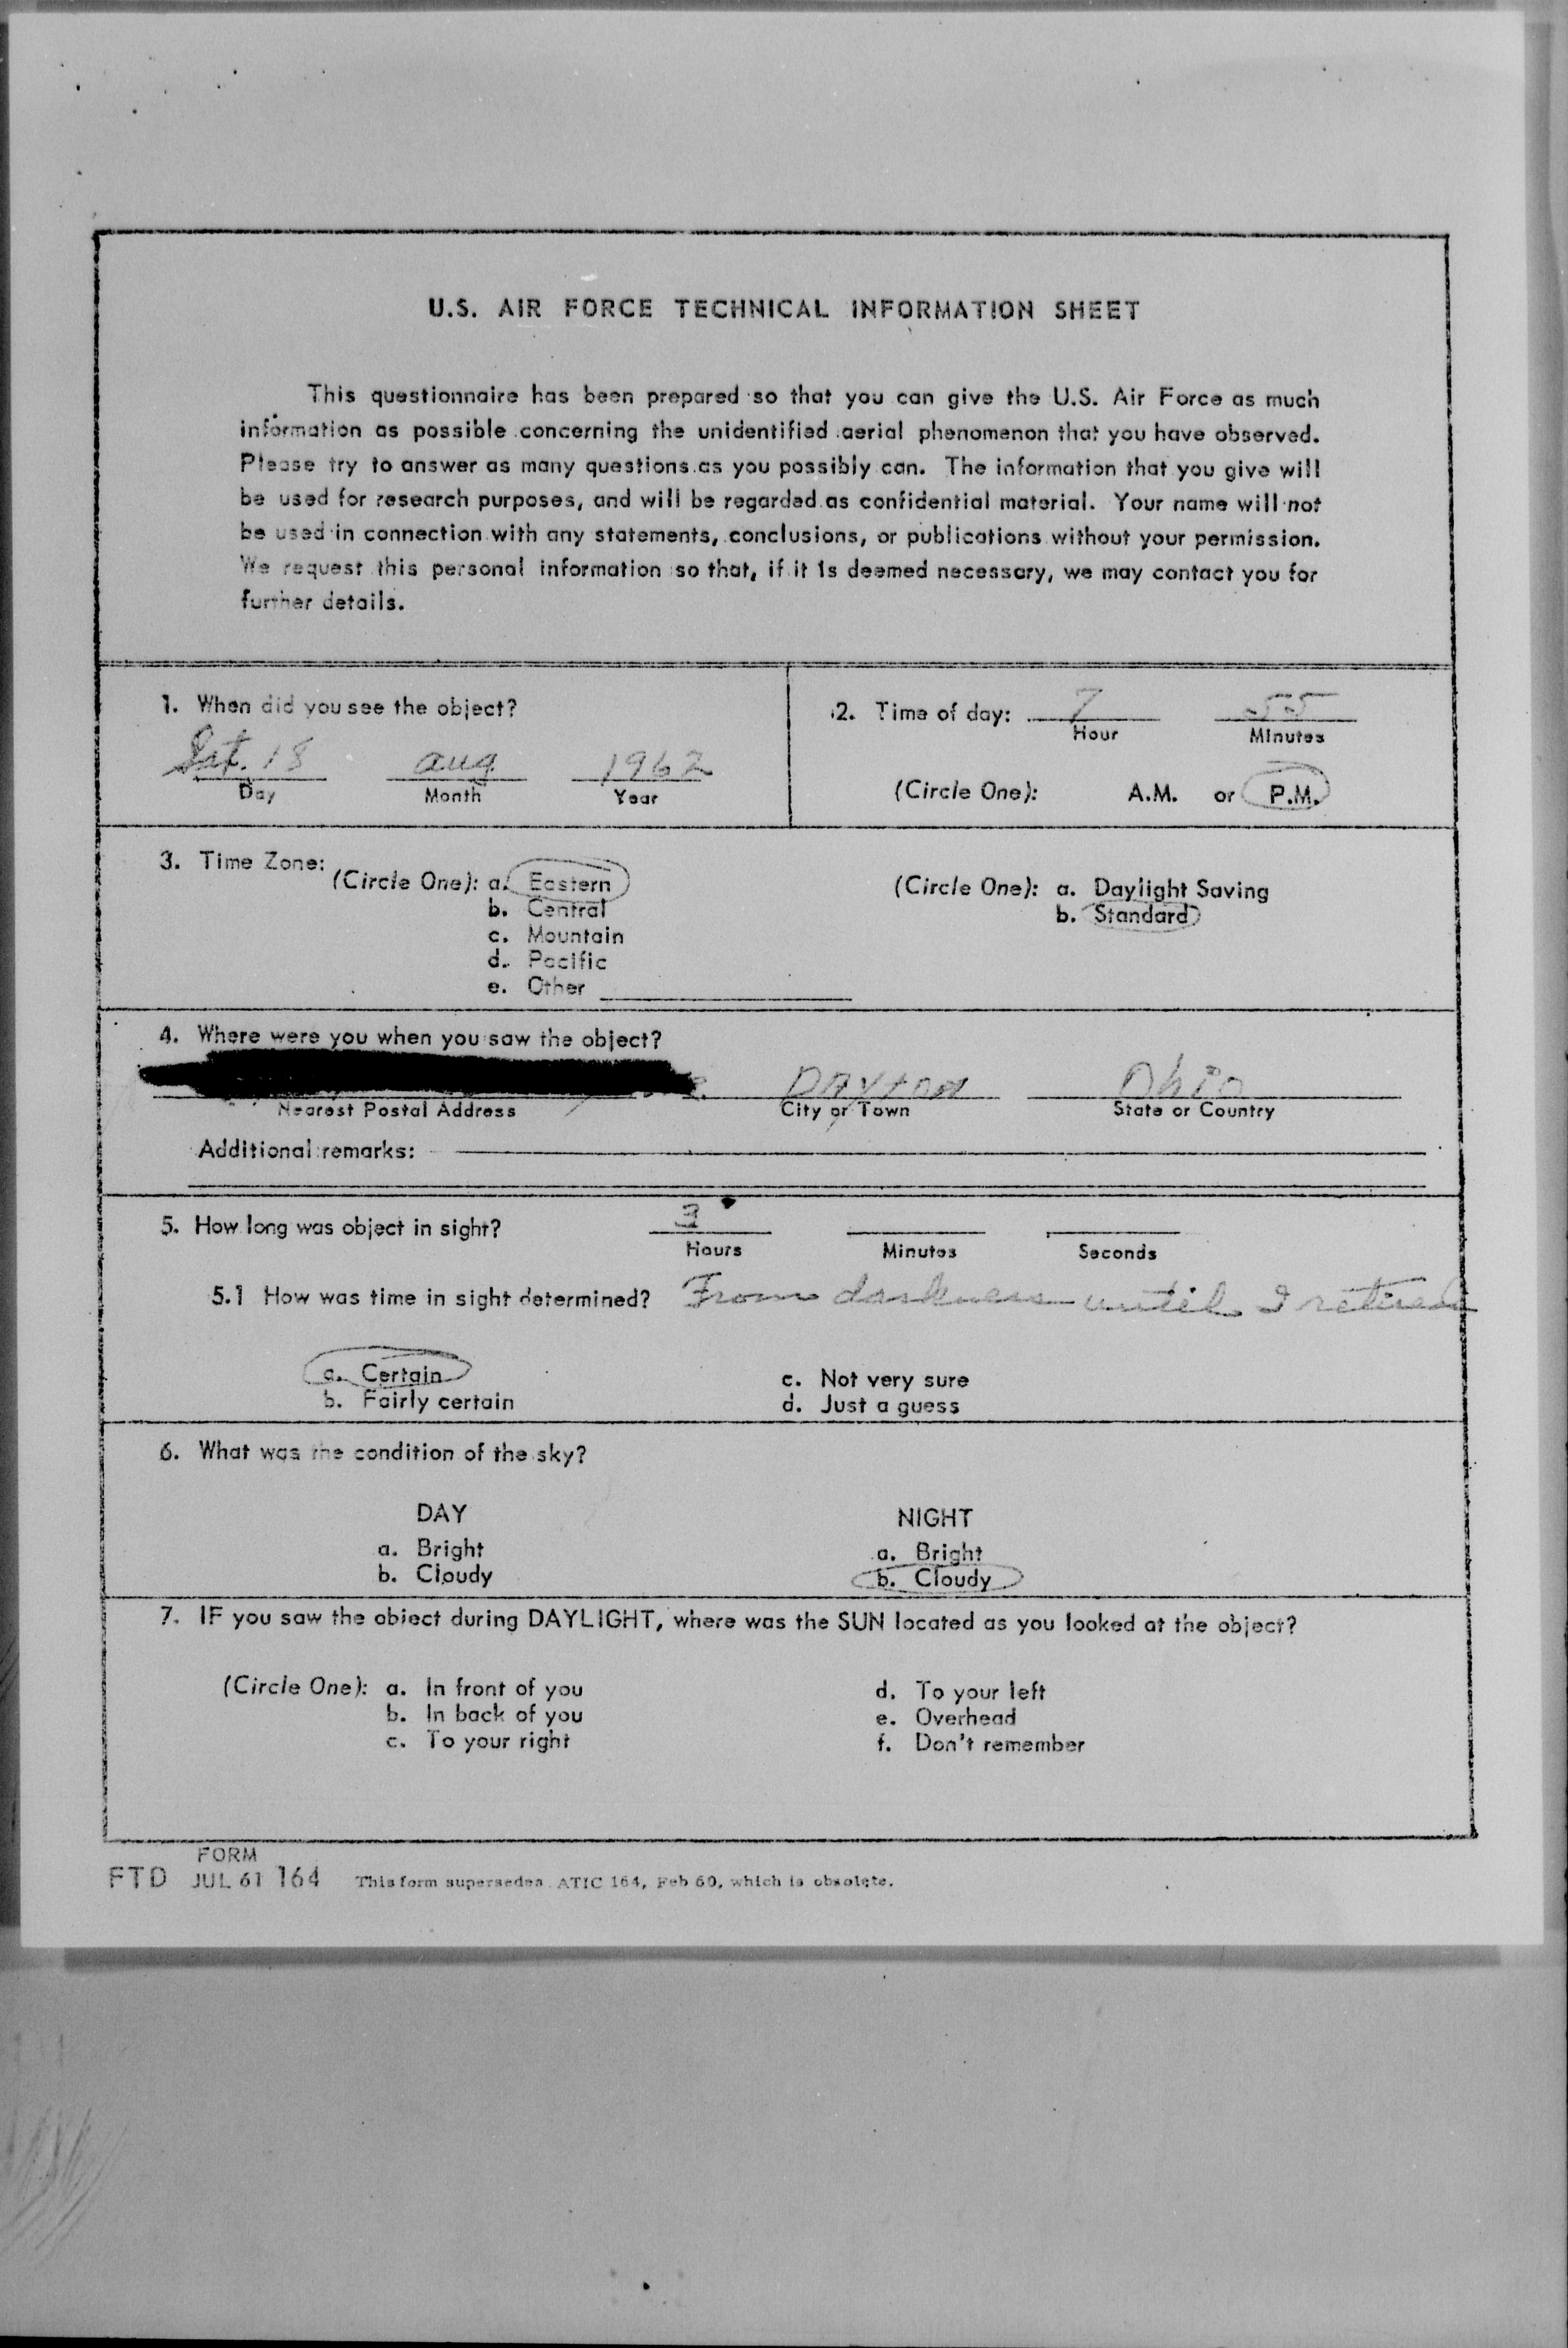 U.S. AIR FORCE TECHNICAL INFORMATION SHEET
This questionnaire has been prepared so that you can give the U.S. Air Force as much
information as possible concerning the unidentified aerial phenomenon that you have observed.
Please try to answer as many questions as you possibly can. The information that you give will
be used for research purposes, and will be regarded as confidential material. Your name will not
be used in connection with any statements, conclusions, or publications without your permission.
We request this personal information so that, if it is deemed necessary, we may contact you for
further details.
1. When did you see the object?
Sat. 18 aug 1962
Day Month Year
2. Time of day: 7 55
Hour Minutes
(Circle One): A.M. or P.M.
3. Time Zone:
(Circle One): a. Eastern
b. Central
c. Mountain
d. Pacific
e. Other
(Circle One): a. Daylight Saving
b. Standard
4. Where were you when you saw the object?
DAYTON Ohio
Nearest Postal Address City or Town State or Country
Additional remarks:
5. How long was object in sight? 3
Hours Minutes Seconds
5.1 How was time in sight determined? From darkness until I retired
a. Certain c. Not very sure
b. Fairly certain d. Just a guess
6. What was the condition of the sky?
DAY NIGHT
a. Bright a. Bright
b. Cloudy b. Cloudy
7. IF you saw the object during DAYLIGHT, where was the SUN located as you looked at the object?
(Circle One): a. In front of you d. To your left
b. In back of you e. Overhead
c. To your right f. Don't remember
FORM
FTD JUL 61 164 This form supersedes ATIC 164, Feb 60, which is obsolete.